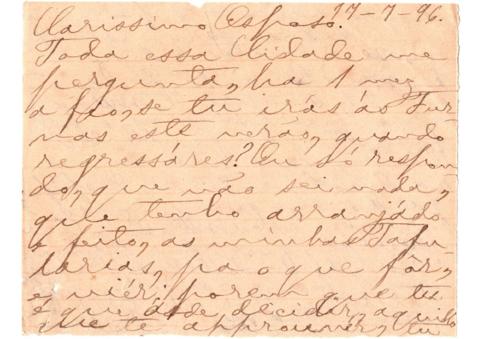 Clarissimo Esposo. 17-7-96.
Toda essa Cidade me
pergunta, ha 1 mez
a fio, se tu irás ás Fur-
nas este verão, quando
regressáres? Eu só respon-
do, que não sei nada,
que tenho arranjádo
e feito, as minhas
pa o que fôr,
e viér; porem que tu
é que ás de decidir, aquillo
que te approuver, tu